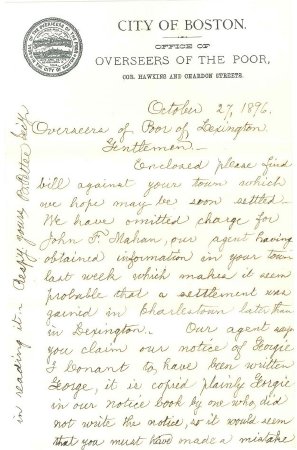 CITY OF BOSTON.
OFFICE OF
OVERSEERS OF THE POOR,
COR. HAWKINS AND CHARDON STREETS.
October 27, 1896.
Overseers of Poor of Lexington
Gentlemen —
Enclosed please find
bill against your town which
we hope may be soon settled.
We have omitted charge for
John F. Mahan, our agent having
obtained information in your town
last week which makes it seem
probable that a settlement was
gained in Charlestown later than
in Lexington. Our agent says
you claim our notice of Georgie
to have been written
George, it is copied plainly Georgie
in our notice book by one who did
not write the notice, so it would seem
that you must have made a mistake
in reading it.
yours